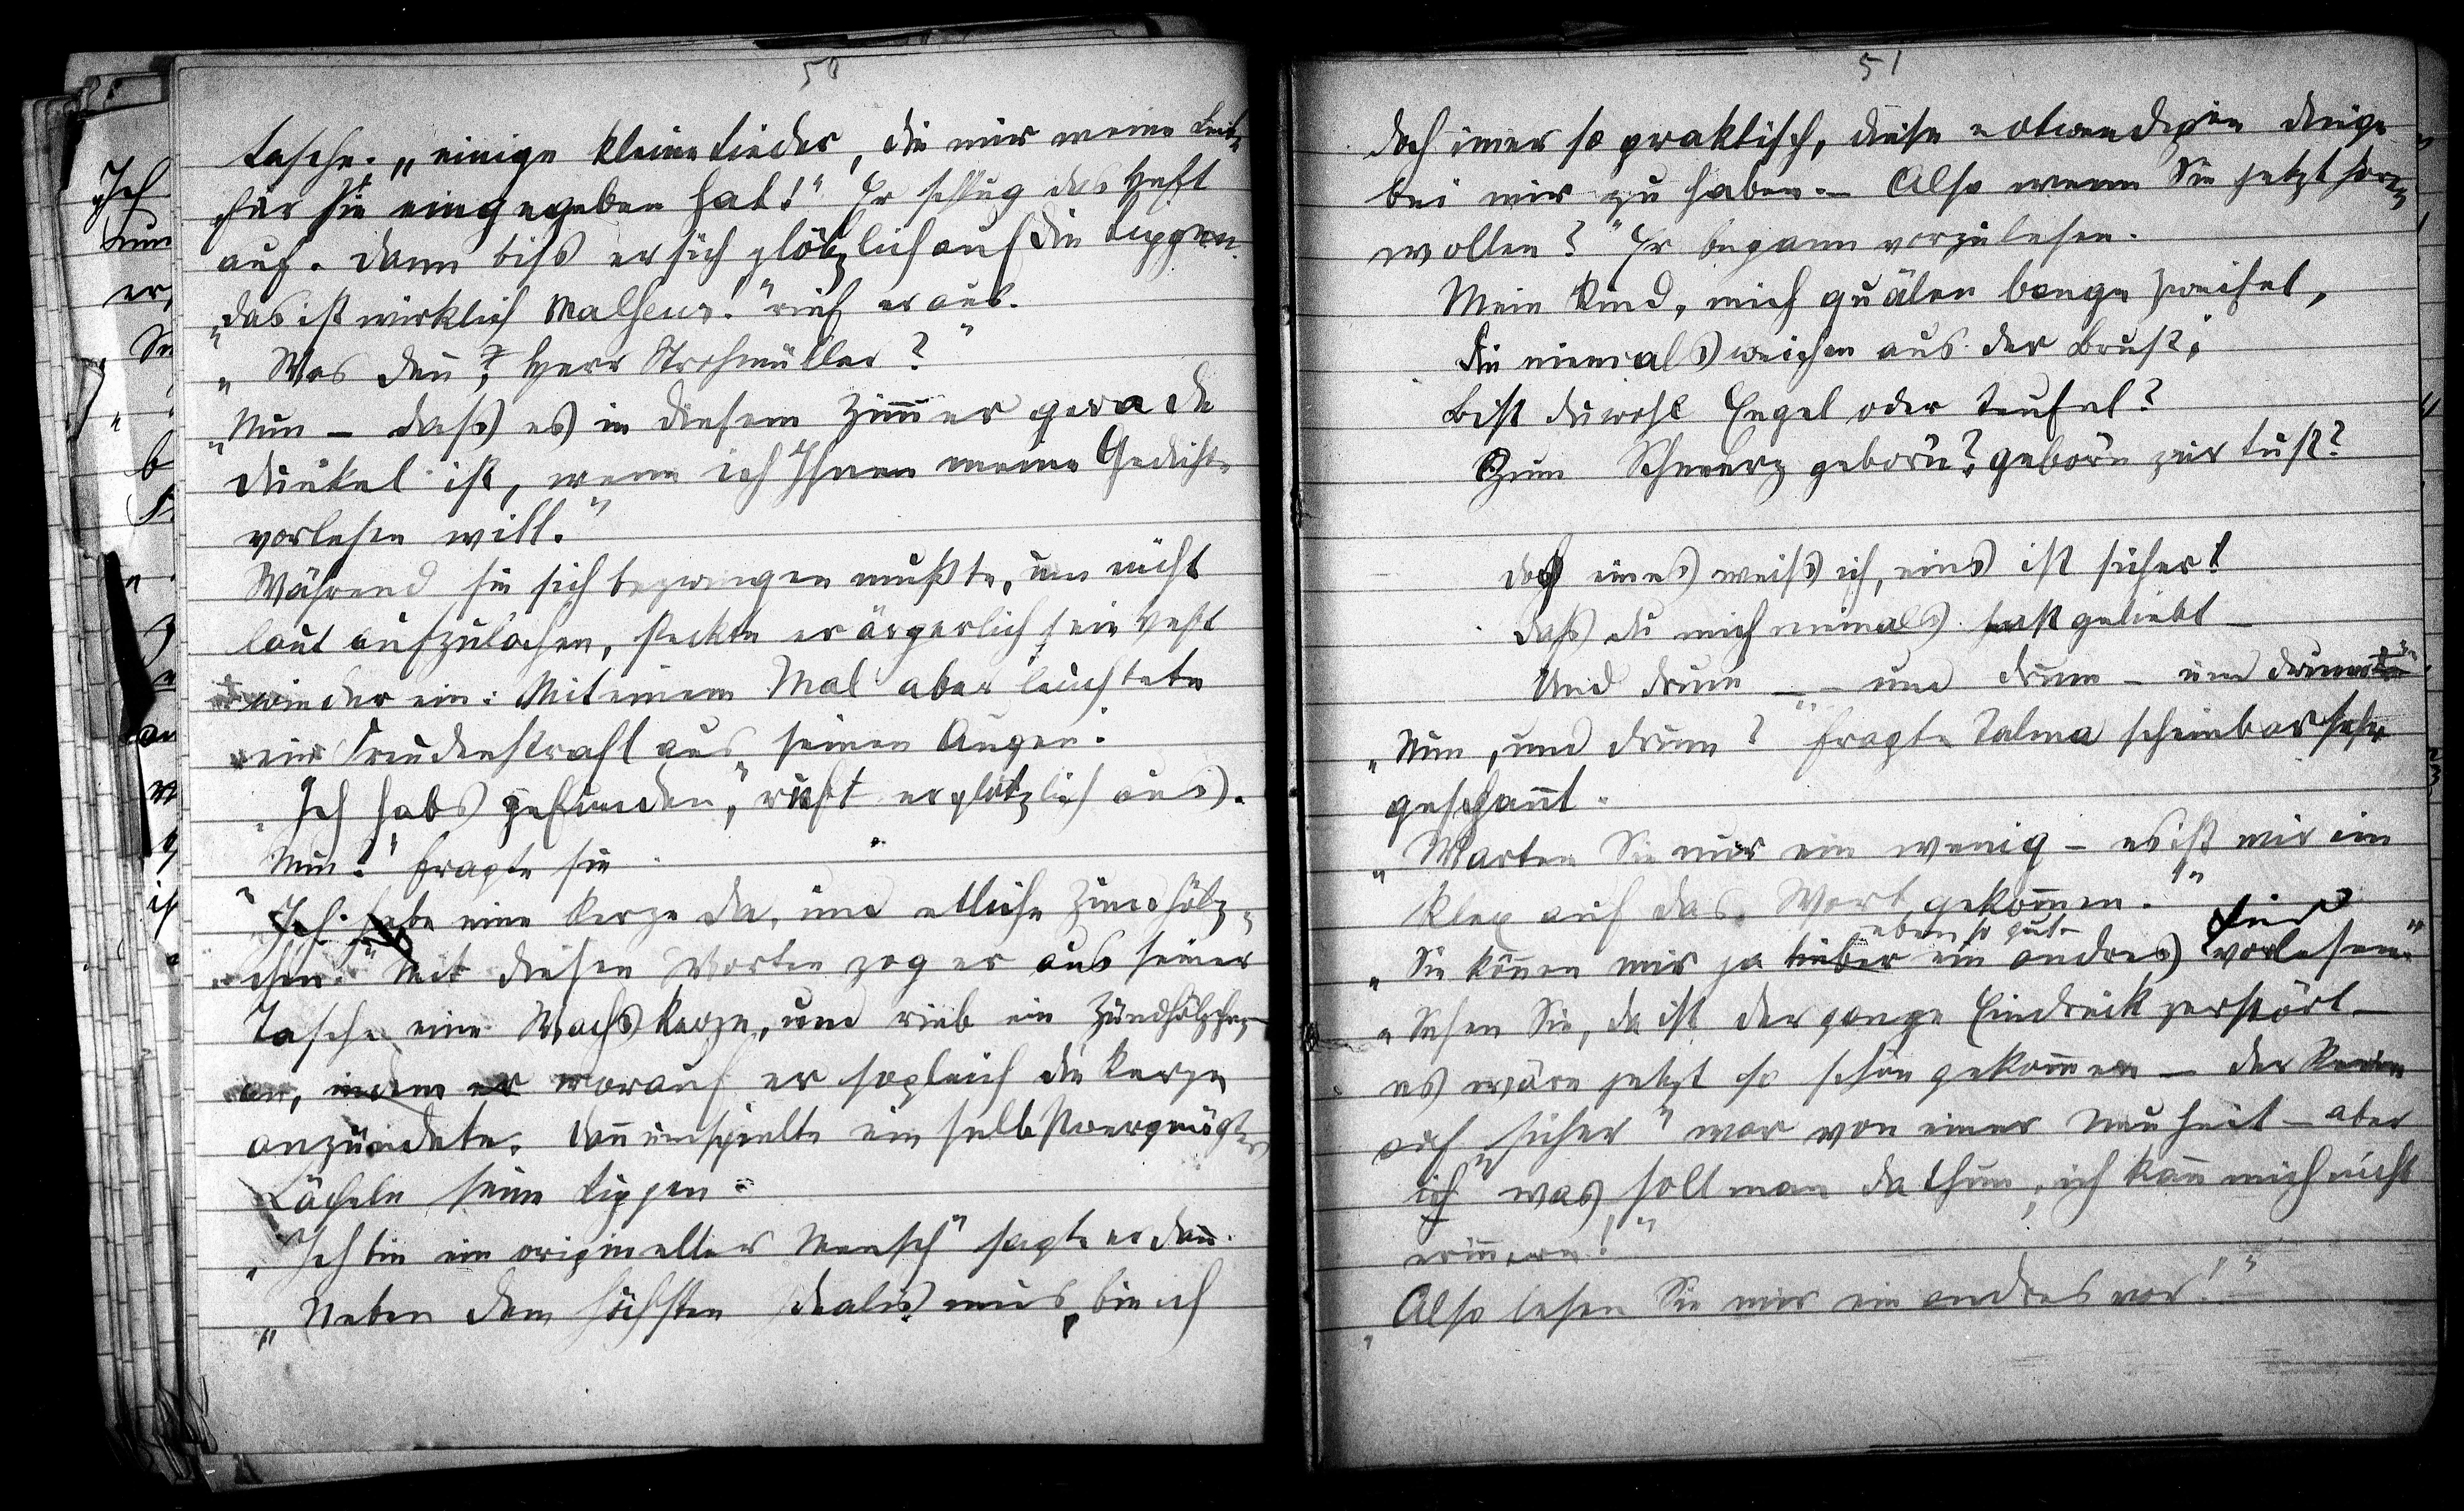 50
tasche. „einige kleine Lieder, die mir meine Liebe
für Sie eingegeben hat!“ Er schlug das Heft
auf. Dann biss er sich plötzlich auf die Lippen.
„Das ist wirklich Malheur!“ rief er aus.
„Was den̅?, Herr Strohmüller?“
„Nun – dass es in diesem Zim̅er gerade
dunkel ist, wenn ich Ihnen meine Gedichte
vorlesen will.“
Während sie sich bezwingen mußte, um nicht
laut aufzulachen, steckte er ärgerlich sein Heft
wieder ein: Mit einem Mal aber leuchtete
ein Freudenstrahl aus seinen Augen.
„Ich habs gefunden,“ ruft er plötzlich aus.
„Nun?“ fragte sie.
„Ich habe eine Kerze da, und etliche Zündhölz-
chen.“ Mit diesen Worten zog er aus seiner
Tasche eine Wachskerze, und rieb ein Zündhölzchen
an, indem er worauf er sogleich die Kerze
anzündete. Dan̅ umspielte ein selbstvergnügtes
Lächeln seine Lippen.
„Ich bin ein origineller Mensch“ sagte er dan̅.
„Neben dem höchsten Idealismus, bin ich
51
doch im̅er so praktisch, diese notwendigen Dinge
bei mir zu haben. – Also wenn Sie jetzt hören
wollen?“ Er begann vorzulesen.
Mein Kind, mich quälen bange Zweifel,
Die niemals weichen aus der Brust,
Bist du wohl Engel oder Teufel?
Zum Schmerz geborn? geborn zur Lust?
Doch eines weiss ich, eins ist sicher!
Dass du mich niemals hast geliebt –
Und drum – – und drum – und drum
„Nun, und drum?“ fragte Talma scheinbar sehr
gespan̅t.
„Warten Sie nur ein wenig – es ist mir ein
Klex auf das Wort gekom̅en.“
eben so gut
Lied
„Sie kön̅en mir ja lieber ein andres vorlesen.“
„Sehen Sie, da ist der ganze Eindruck zerstört –
es wäre jetzt so schön gekom̅en – der Reim
auf „sicher“ war von einer Neuheit – aber
ich was soll man da thun, ich kan̅ mich nicht
erin̅ern!“
„Also lesen Sie mir ein andres vor!“